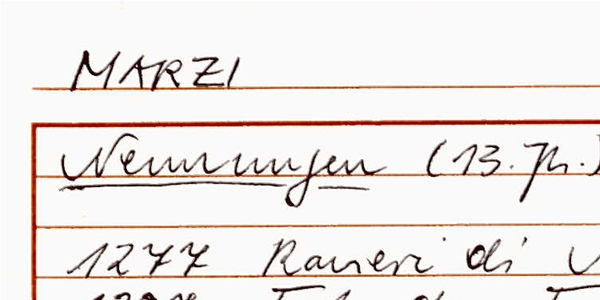 MARZI
Nennungen (13. Jh.)
1277 Ranieri di